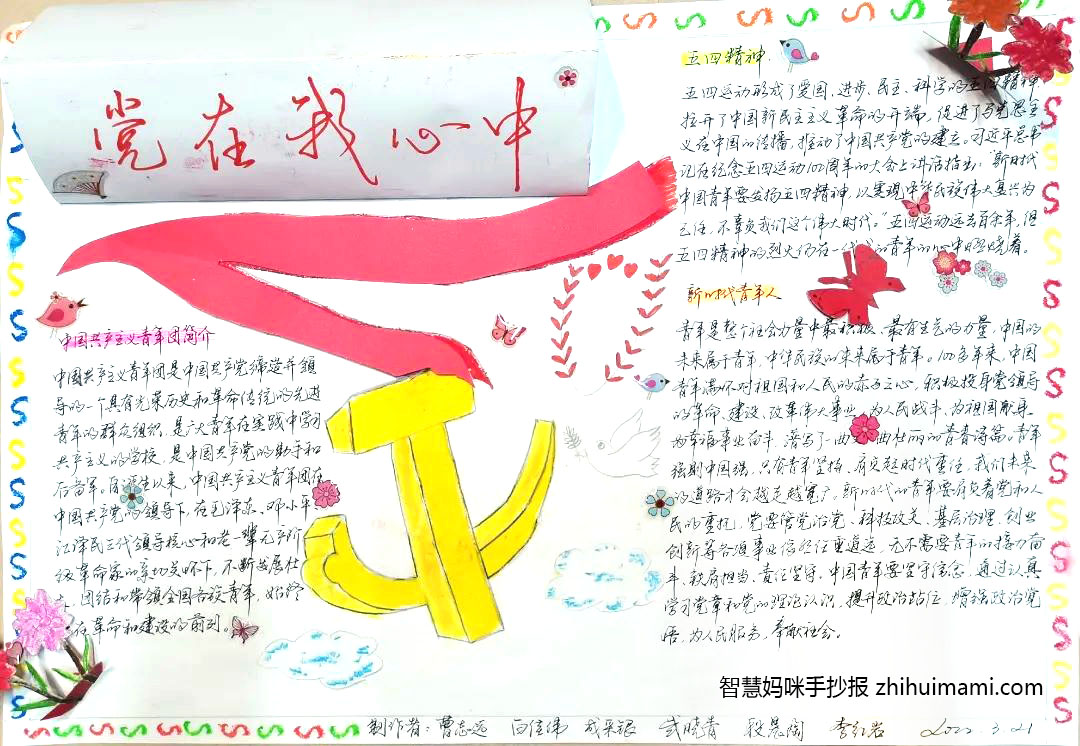 党在我心中
中国共产主义青年团简介
中国共产主义青年团是中国共产党缔造并领
导的一个具有光荣历史和革命传统的先进
青年的群众组织，是广大青年在实践中学习
共产主义的学校，是中国共产党的助手和
后备军。自诞生以来，中国共产主义青年团在
中国共产党的领导下，在毛泽东、邓小平、
江泽民三代领导核心和老一辈无产阶
级革命家的亲切关怀下，不断发展壮
大，团结和带领全国各族青年，始终
在革命和建设的前列。
五四精神
五四运动形成了爱国、进步、民主、科学的五四精神
拉开了中国新民主主义革命的开端，促进了马克思主
义在中国的传播，推动了中国共产党的建立。习近平总书
记在纪念五四运动100周年的大会上讲话指出："新时代
中国青年要发扬五四精神，以实现中华民族伟大复兴为
己任，不辜负我们这个伟大时代。"五四运动远去百余年，但
五四精神的烈火仍在一代代的青年的心中照耀着。
新时代青年人
青年是整个社会力量中最积极、最有生气的力量，中国的
未来属于青年，中华民族的未来属于青年。100多年来，中国
青年满怀对祖国和人民的赤子之心，积极投身党领导
的革命、建设、改革伟大事业，为人民战斗、为祖国献身、
为幸福事业奋斗，谱写了一曲又一曲壮丽的青春诗篇。青年
强则中国强，只有青年坚持、肩负起时代重任，我们未来
的道路才会越走越宽广。新时代的青年要肩负着党和人
民的重托，党要管党治党、科技攻关、基层治理、创业
创新等各项事业依然任重道远，无不需要青年的接力奋
斗、敢肩担当、责任坚守。中国青年要坚守信念，通过认真
学习党章和党的理论认识，提升政治站位，增强政治觉
悟，为人民服务，奉献社会。
智慧妈咪手抄报 zhihuimami.com
制作者：曹志远 白佳伟 成采银 武晓青 段晨阁 李红岩 2022.3.21